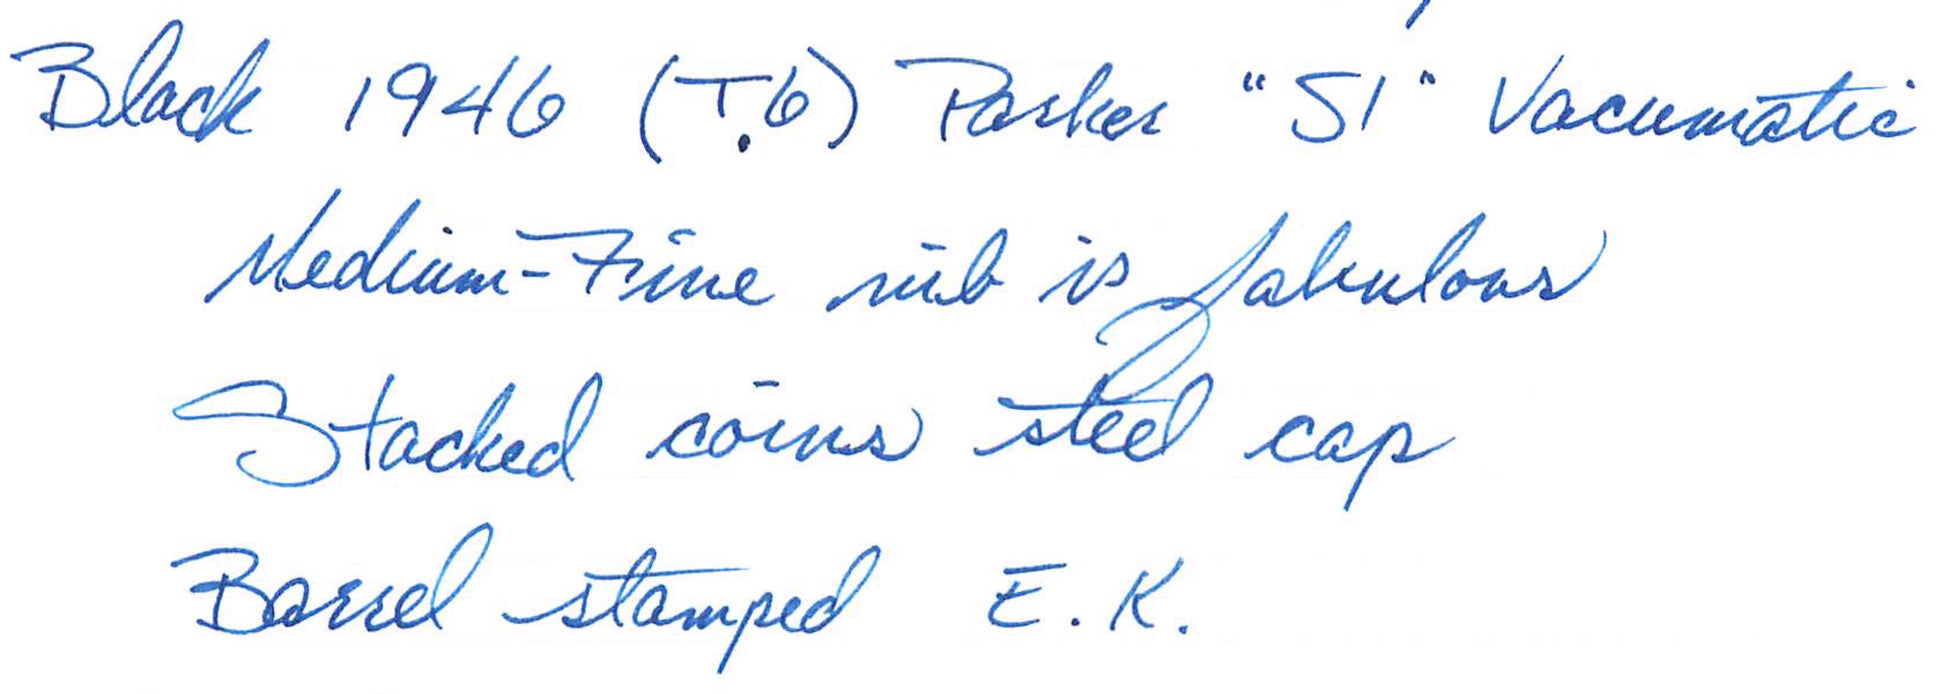 Black 1946 (T.6) Parker "51" Vacumatic
Medium-Fine nib is fabulous
Stacked coins steel cap
Barrel stamped E.K.